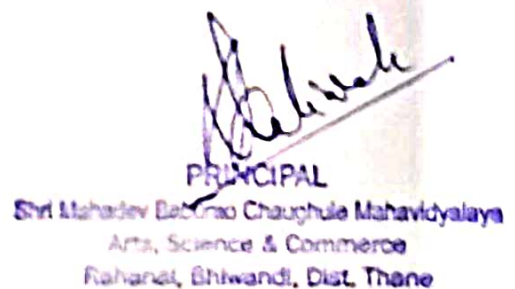 PRINCIPAL
Shri Mahadev Baburao Chaughule Mahavidyalaya
Arts, Science & Commerce
Rahanal, Bhiwandi, Dist. Thane